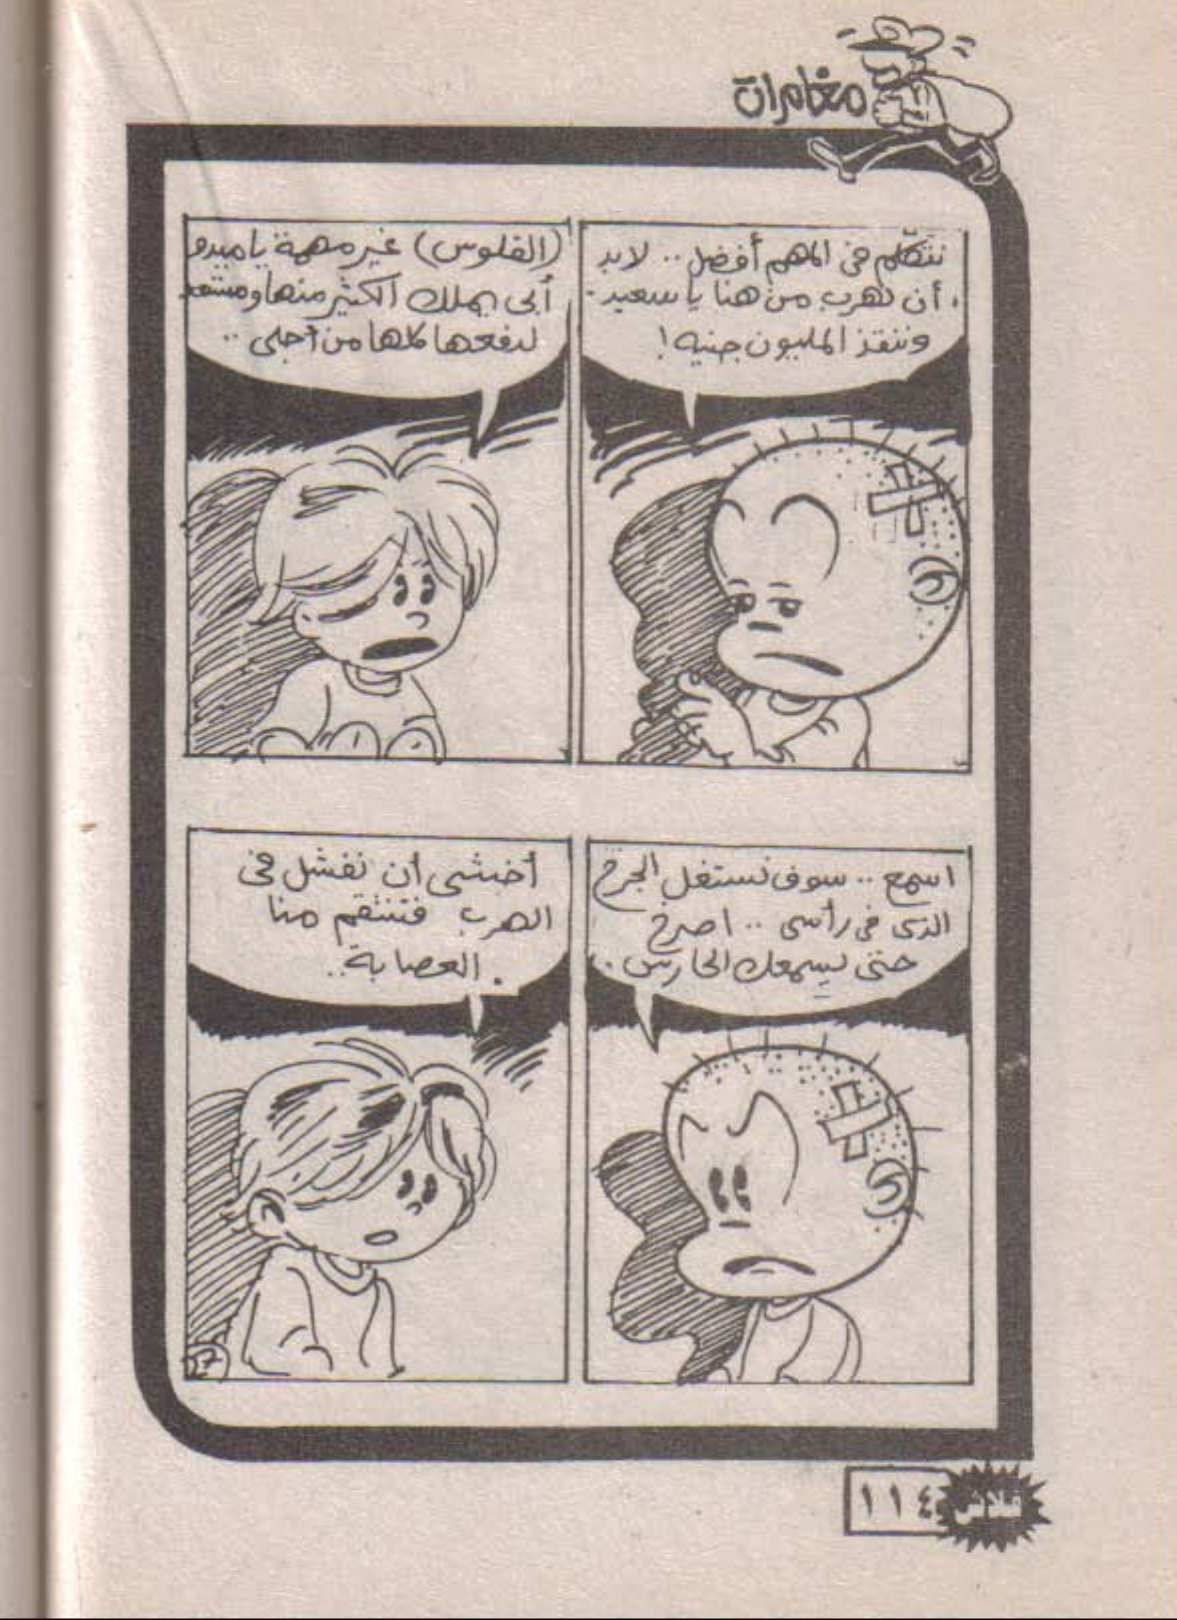 مغامرات
نتكلم فى المهم أفضل .. لابد
أن نهرب من هنا يا سعيد.
وننقذ المليون جنيه !
(الفلوس) غير مهمة يا ميدو
أبى يملك الكثير منها ومستعد
لدفعها كلها من أجلى ..
اسمع .. سوف نستغل الجرح
الذى فى رأسى .. اصرخ
حتى يسمعك الحارس.
أخشى أن نفشل فى
الهرب فتنتقم منا
العصابة..
فلاش
١١٤